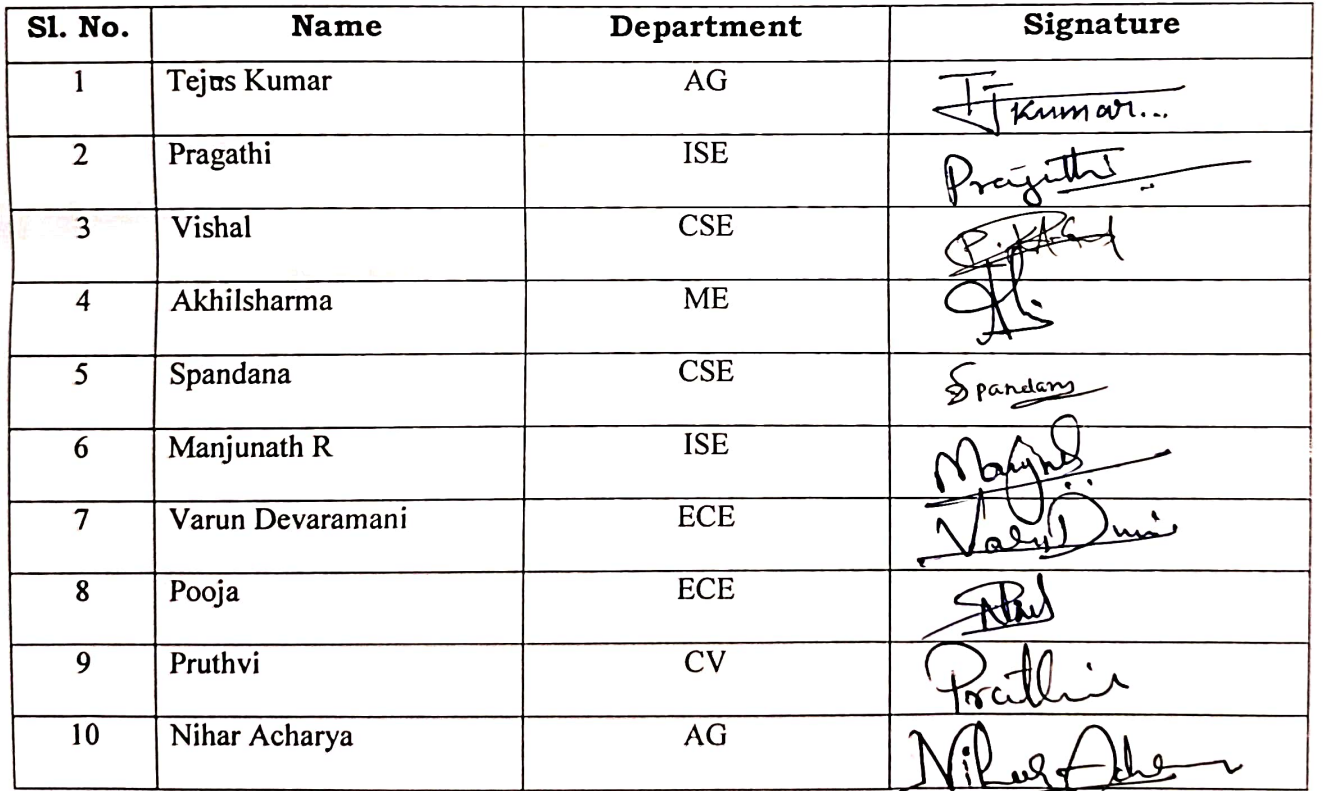 Sl. No. Name Department Signature
1 Tejus Kumar AG Kumar...
2 Pragathi ISE Pragathi
3 Vishal CSE
4 Akhilsharma ME
5 Spandana CSE Spandana
6 Manjunath R ISE
7 Varun Devaramani ECE
8 Pooja ECE
9 Pruthvi CV
10 Nihar Acharya AG